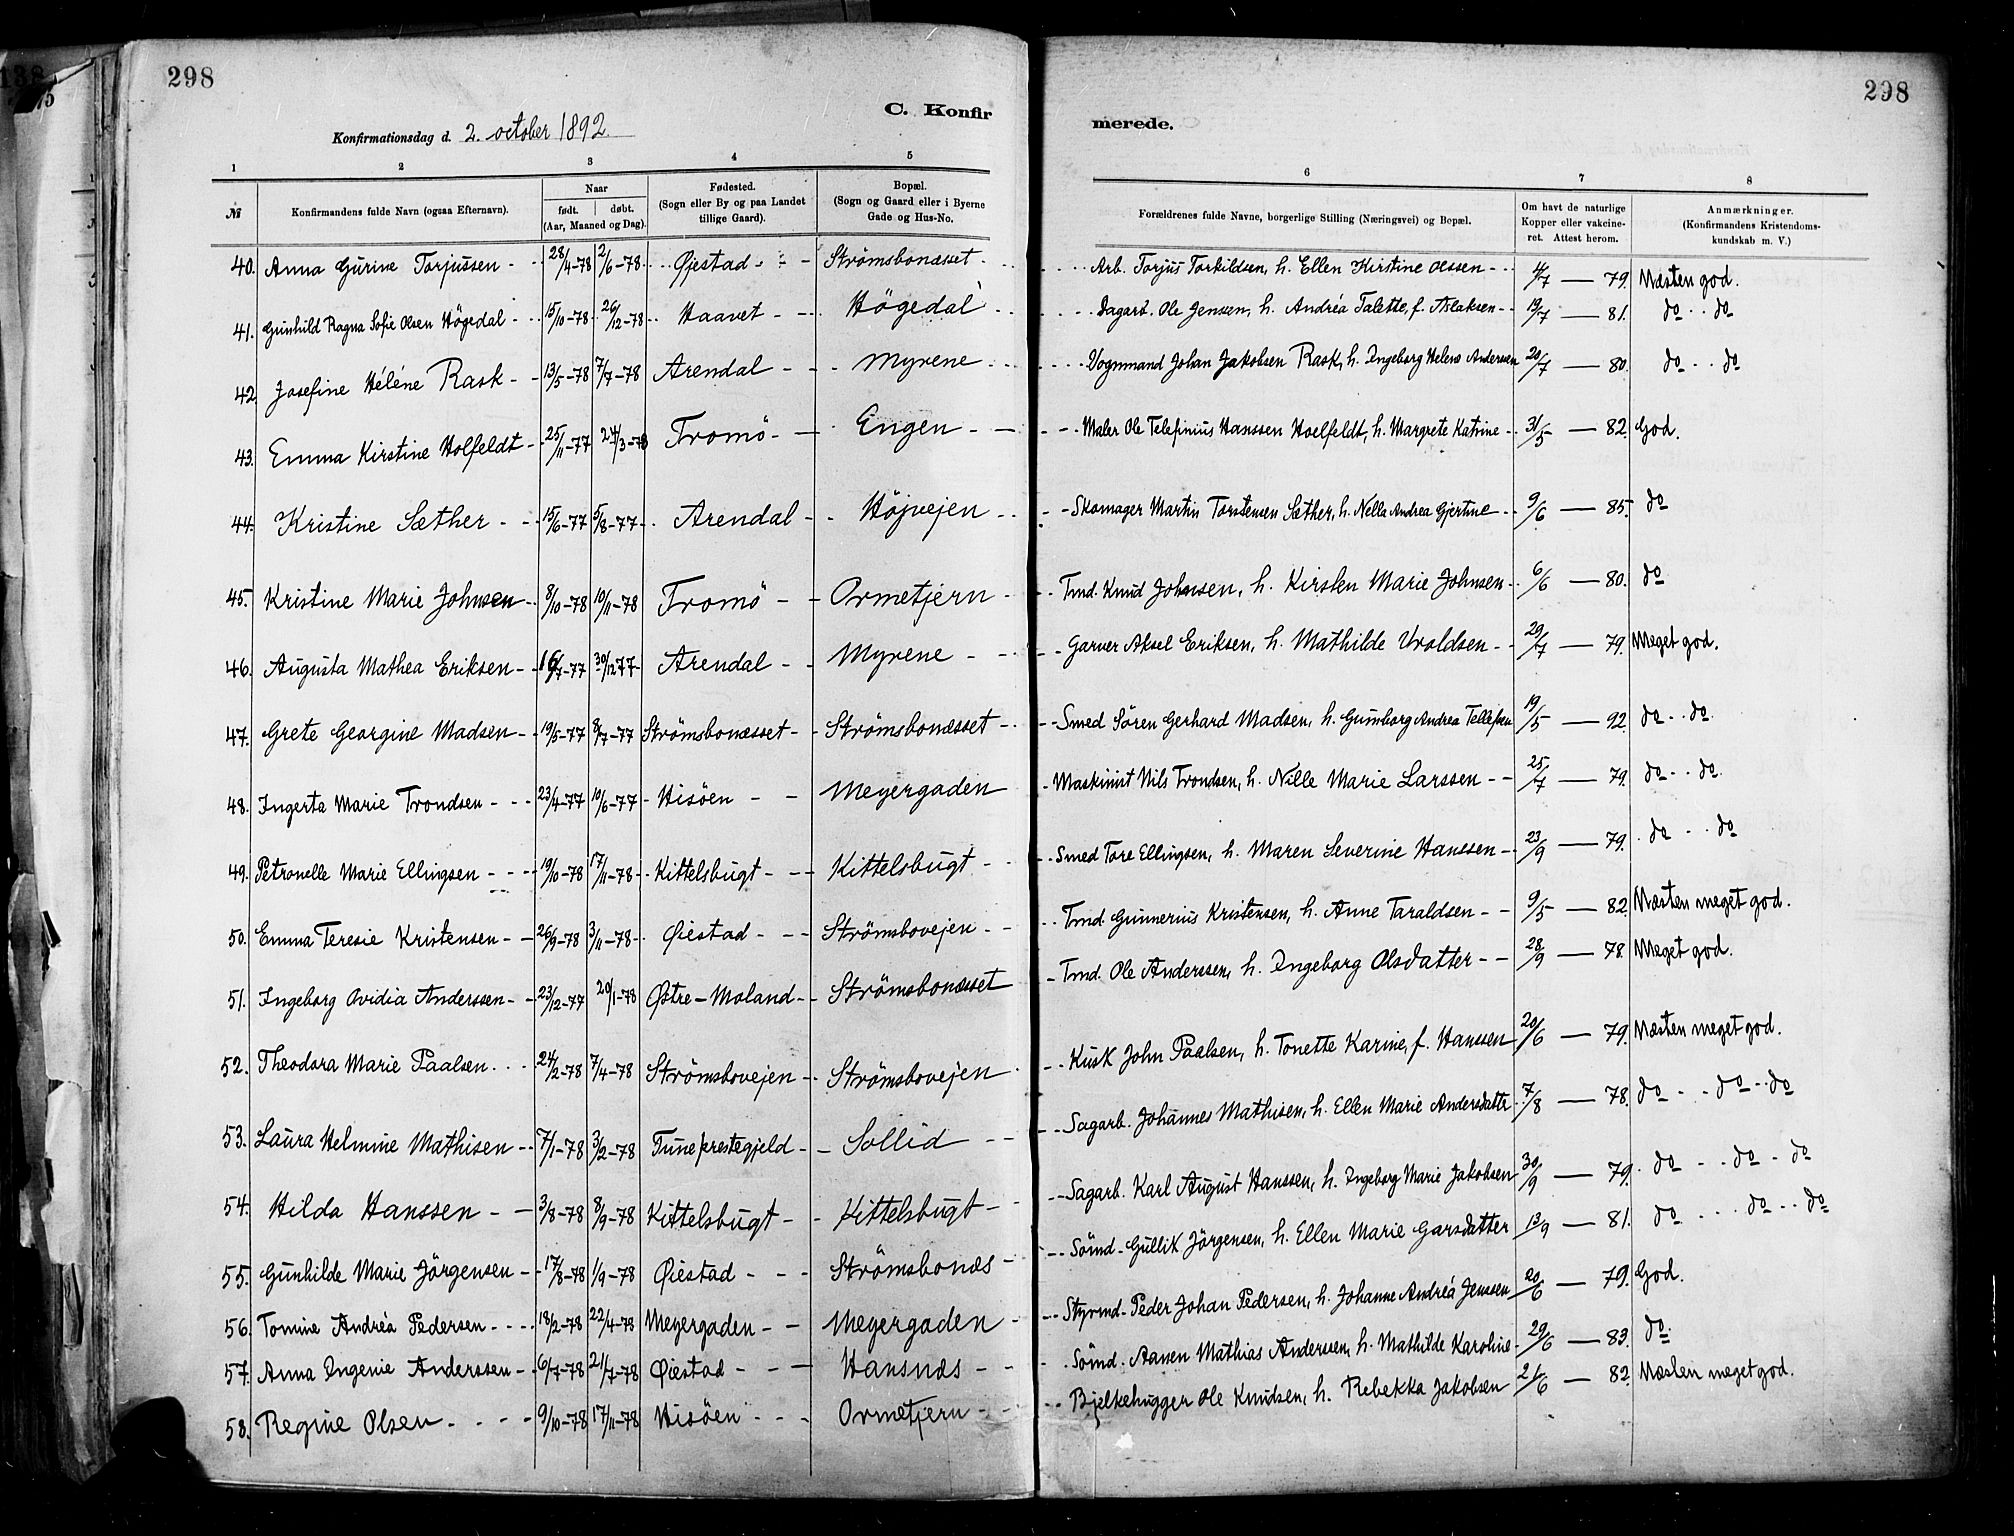 298
C. Konfir
Konfirmationsdag d. 2. october 1892.
1 2 3 4 5
№ Konfirmandens fulde Navn (ogsaa Efternavn). Naar født. døbt. (Aar, Maaned og Dag). Fødested. (Sogn eller By og paa Landet tillige Gaard). Bopæl. (Sogn og Gaard eller i Byerne Gade og Hus-No.
40. Anna Gurine Torjussen - 28/4-78 2/6-78. Øjestad - Strömsbonæsset
41. Gunhild Ragna Sofie Olsen Högedal - 15/10-78 26/12-78 Haavet - Högedal
42 Josefine Héléne Rask - 13/5-78 7/7-78 Arendal - Myrene
43. Emma Kirstine Holfeldt - 25/11-77 24/3-78 Tromö - Engen
44. Kristine Sæther - 15/6-77 5/8-77 Arendal - Höjvejen
45. Kristine Marie Johnsen - 8/10-78 10/11-78 Tromö - Ormetjern
46. Augusta Mathea Eriksen - 16/7-77 30/12 77 Arendal - Myrene
47. Grete Georgine Madsen - 19/5-77 8/7-77 Strömsbonæsset - Strömsbonæsset
48. Ingerta Marie Trondsen - 23/4-77 10/6-77 Hisöen - Meyergaden
49. Petronelle Marie Ellingsen - 19/10-78 17/11-78 Kittelsbugt - Kittelsbugt
50. Emma Teresie Kristensen - 26/9-78 3/11-78 Øiestad - Strömsbovejen
51. Ingeborg Ovidia Anderssen - 23/12-77 20/1-78 Østre-Moland - Strömsbonæsset
52. Theodora Marie Paalsen - 24/2-78 7/4-78 Strömsbovejen - Strömsbovejen
53. Laura Helmine Mathisen - 7/1-78 3/2-78 Tune prestegjeld - Sollid
54. Hilda Hanssen - 3/8-78 8/9-78 Kittelsbugt - Kittelsbugt
55. Gunhilde Marie Jörgensen - 17/8-78 1/9-78 Øiestad - Strömsbonæs
56. Tomine Andréa Pedersen - 18/2-78 22/4-78 Meyergaden - Meyergaden
57. Anna Ingenie Anderssen - 6/7-78 21/7-78 Øiestad - Hansnæs
58. Regine Olsen - 9/10-78 17/11-78 Hisöen - Ormetjern
298
merede.
6 7 8
Forældrenes fulde Navne, borgerlige Stilling (Næringsvei) og Bopæl. Om havt de naturlige Kopper eller vakcineret. Attest herom. Anmærkninger. (Konfirmandens Kristendomskundskab m. V.)
Arb. Torjus Torkildsen, h. Ellen Kirstine Olssen - 4/7 — 79. Næsten god.
Dagarb. Ole Jensen, h. Andréa Talette, f. Aslaksen - 19/7 — 81. do do
Vognmand Johan Jakobsen Rask, h. Ingeborg Helene Andersen 20/7 — 80. do do
Maler Ole Telefinius Hanssen Hoelfeldt, h. Margrete Katrine - 31/5 — 82. God.
Skomager Martin Torstensen Sæther, h. Nella Andrea Gjertine - 9/6 — 85. do
Tmd. Knud Johnsen, h. Kirsten Marie Johnsen - 6/6 — 80. do
Garver Aksel Eriksen, h. Mathilde Uroldsen - 29/7 — 79. Meget god.
Smed Sören Gerhard Madsen, h. Gunborg Andrea Tellefsen 19/5 — 92. do do
Maskinist Nils Trondsen, h. Nille Marie Larssen - 25/7 — 79. do do
Smed Tore Ellingsen, h. Maren Severine Hanssen - 23/9 — 79. do do
Tmd. Gunnerius Kristensen, h. Anne Taraldsen - 9/5 — 82. Næsten meget god.
Tmd. Ole Anderssen, h. Ingeborg Olsdatter - 28/9 — 78. Meget god.
Kusk John Paalsen, h. Tonette Karine, f. Hanssen 20/6 — 79. Næsten meget god.
Sagarb. Johannes Mathisen, h. Ellen Marie Andersdattr 7/8 — 78. do do do
Sagarb. Karl August Hanssen, h. Ingeborg Marie Jakobsen 30/9 — 79. do do do
Sömd. Gullik Jörgensen, h. Ellen Marie Garsdatter 13/9 — 81. do do do
Styrmd. Peder Johan Pedersen, h. Johanne Andréa Jenssen 20/6 — 79. God.
Sömd. Aanen Mathias Anderssen, h. Mathilde Karoline 29/6 — 83. do
Bjelkehugger Ole Knudsen, h. Rebekka Jakobsen 21/6 — 82. Næsten meget god.